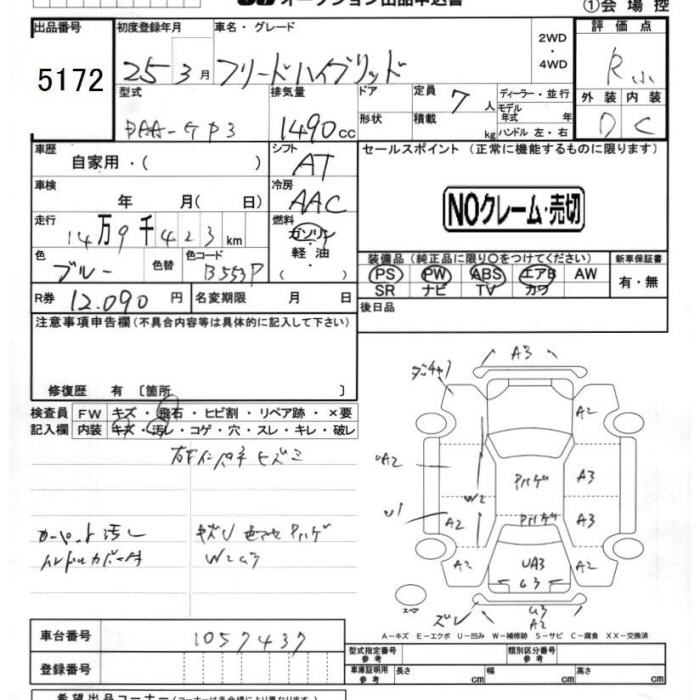 オークション出品申込書
①会場控
出品番号 5172
初度登録年月 25 3月
車名・グレード フリードハイブリッド
2WD・4WD
評価点 R小
外装 内装
D C
型式 DAA-GP3
排気量 1490cc
ドア
形状
定員 7人
積載 kg
ディーラー・並行
モデル年式 年
ハンドル 左・右
車歴 自家用・( )
シフト AT
車検 年 月( 日)
冷房 AAC
走行 14万9千423km
燃料 ガソリン・軽油・( )
色 ブルー
色替
色コード B553P
R券 12,090円
名変期限 月 日
セールスポイント (正常に機能するものに限ります)
NOクレーム・売切
装備品(純正品に限り○をつけてください)
PS PW ABS エアB AW
SR ナビ TV カワ
新車保証書
有・無
後日品
注意事項申告欄(不具合内容等は具体的に記入して下さい)
修復歴 有〔箇所 〕
検査員記入欄
FW キズ・飛石・ヒビ割・リペア跡・×要
内装 キズ・汚レ・コゲ・穴・スレ・キレ・破レ
カーペット汚レ
キズU 色アセ Pハゲ
W2ウラ
A3
A2
UA2
A3
W2
Pハゲ
U1
A2
A3
Pハゲ
A2
UA3
A2
G3
スペア
ズレ
U3
A2
A-キズ E-エクボ U-凹み W-補修跡 S-サビ C-腐食 XX-交換済
車台番号 1057437
登録番号
型式指定番号 参考
類別区分番号 参考
車庫証明用 参考
長さ cm
幅 cm
高さ cm
希望出品コーナー(コーナーは各会場により異なります)